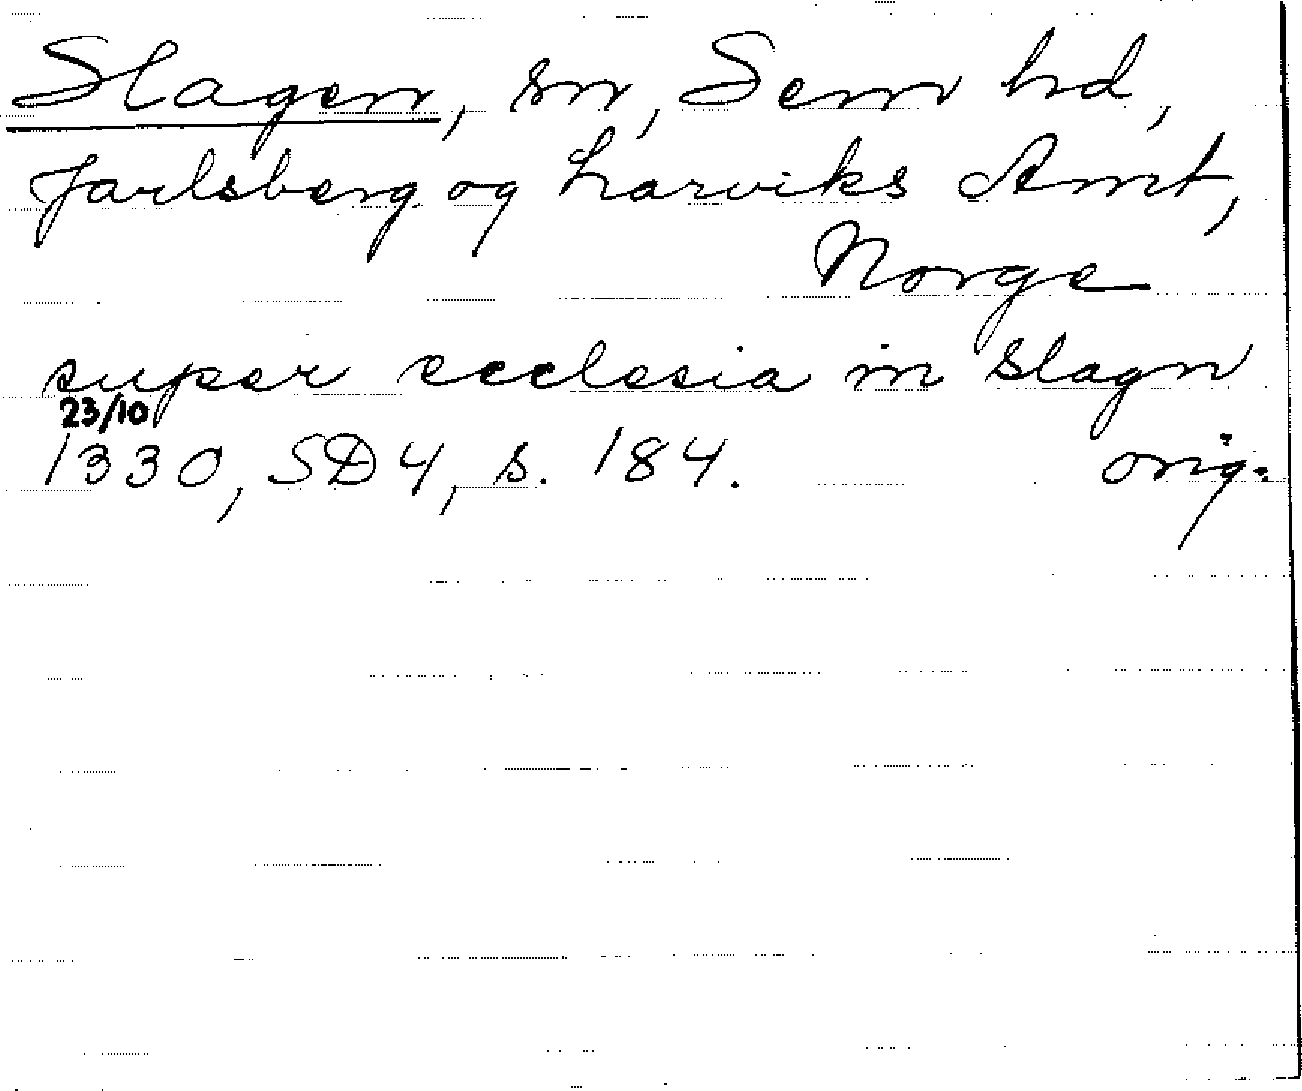 Slagen, sn, Sem hd,
Jarlsberg og Larviks Amt,
Norge
super ecclesia in Slagn
23/10
1330, SD4, s. 184. orig.